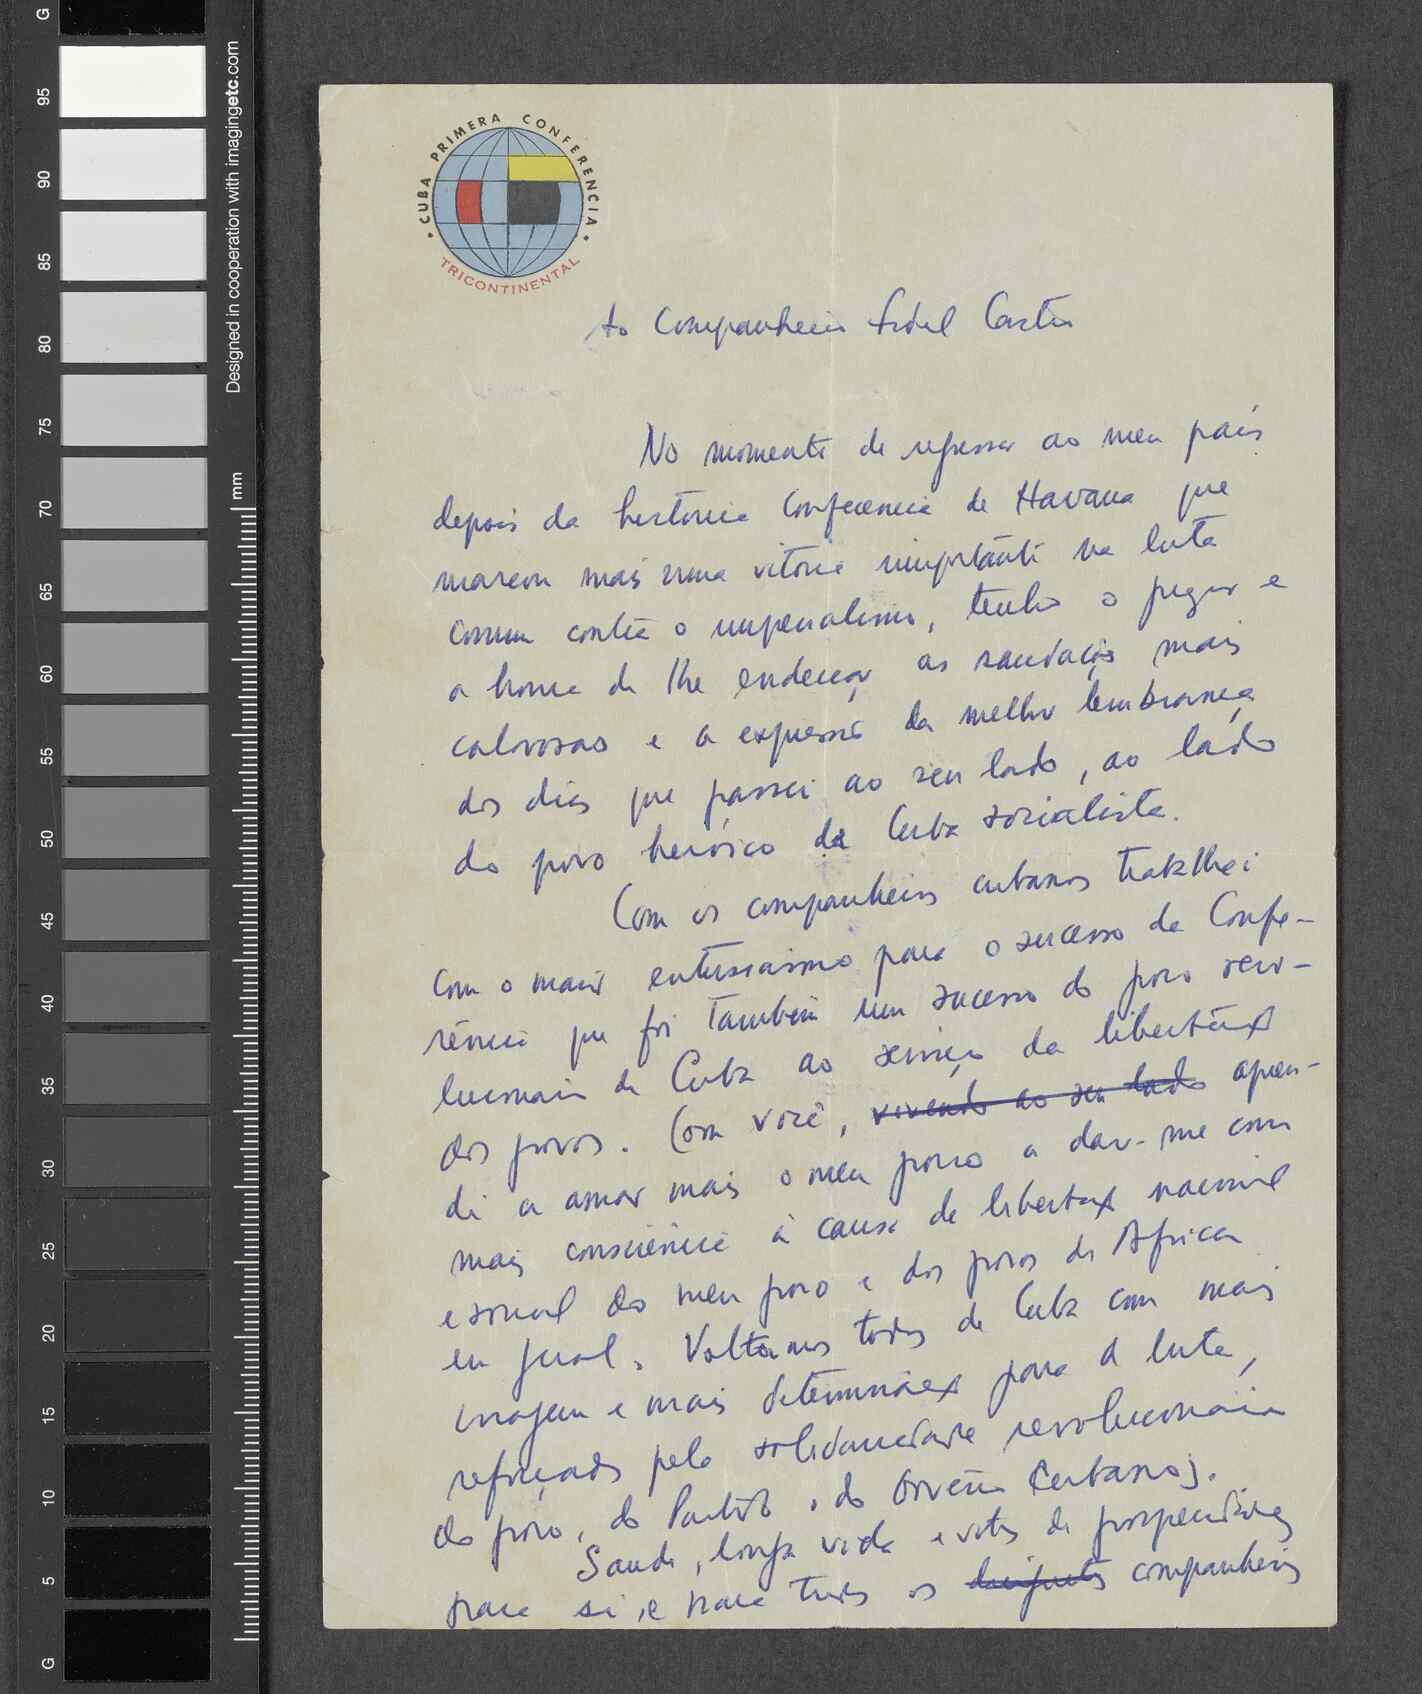 G
95
90
85
80
75
70
65
60
55
50
45
40
35
30
25
20
15
10
5
G
Designed in cooperation with imagingetc.com
mm
• CUBA PRIMERA CONFERENCIA •
TRICONTINENTAL
Ao Companheiro Fidel Castro
No momento de regressar ao meu país
depois da histórica Conferência de Havana que
marcou mais uma vitória importante na luta
comum contra o imperialismo, tenho o prazer e
a honra de lhe endereçar as saudações mais
calorosas e a expressão da melhor lembrança
dos dias que passei ao seu lado, ao lado
do povo heróico da Cuba socialista.
Com os companheiros cubanos trabalhei
com o maior entusiasmo para o sucesso da Confe-
rência que foi também um sucesso do povo revo-
lucionário de Cuba ao serviço da libertação
dos povos. Com você, vivendo ao seu lado apren-
di a amar mais o meu povo a dar-me com
mais consciência à causa da libertação nacional
e social do meu povo e dos povos de África
em geral. Voltamos todos de Cuba com mais
coragem e mais determinação para a luta,
reforçados pela solidariedade revolucionária
do povo, do Partido, do Govêrno Cubanos.
Saude, longa vida e votos de prosperidades
para si, e para todos os companheiros